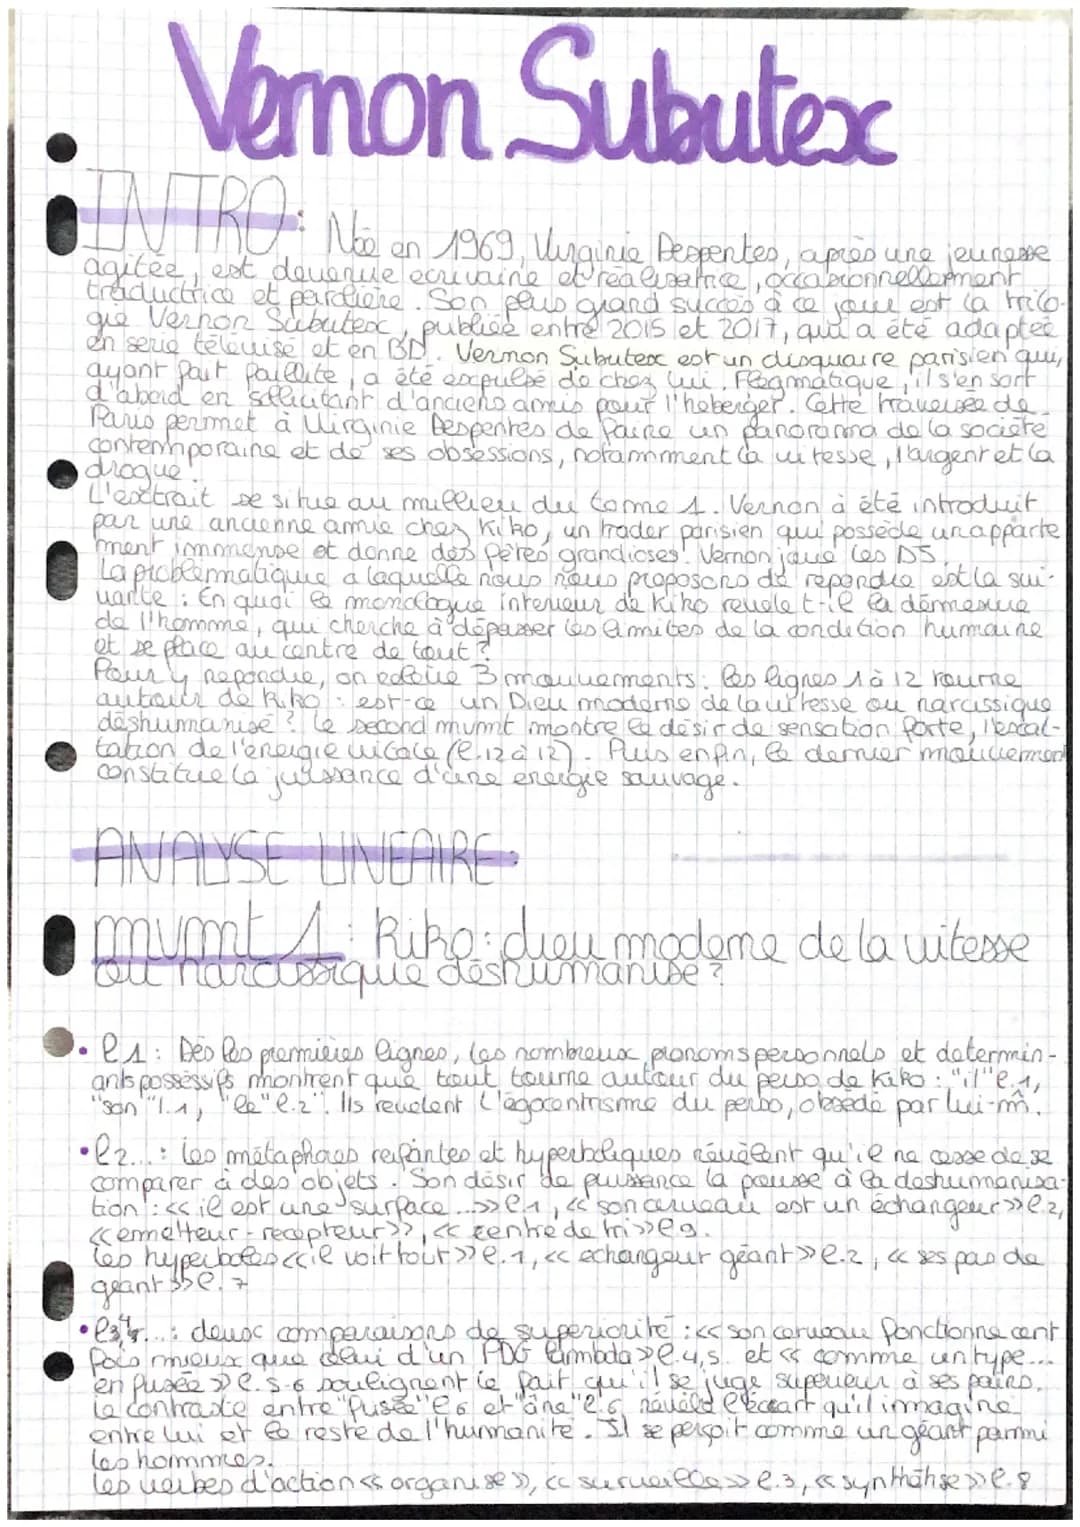 Vernon Subutex
INTRO: Née en 1969, Virginie Despentes, après une jeunesse
agitée, est devenue ecrivaine et réalisatrice, occasionnellement
traductrice et parolière. Son plus grand succès à ce jour est la trilo-
gie Vernon Subutex, publiée entre 2015 et 2017, qui a été adaptée
en serie télévisé et en BD. Vernon Subutex est un disquaire parisien qui,
ayant fait faillite, a été expulsé de chez lui. Flegmatique, il s'en sort
d'abord en sollicitant d'anciens amis pour l'heberger. Cette traversée de
Paris permet à Virginie Despentes de faire un panorama de la société
contemporaine et de ses obsessions, notamment la vitesse, l'argent et la
drogue.
L'extrait se situe au millieu du tome 1. Vernon à été introduit
par une ancienne amie chez Kiko, un trader parisien qui possède un apparte
ment immense et donne des fêtes grandioses. Vernon joue les DJ.
La problématique a laquelle nous nous proposons de repondre est la sui-
vante : En quoi le monologue interieur de Kiko revele t-il la démesure
de l'homme, qui cherche à dépasser les limites de la condition humaine
et se place au centre de tout ?
Pour y repondre, on etudie 3 mouvements: les lignes 1 à 12 tourne
autour de Kiko : est-ce un Dieu moderne de la vitesse ou narcissique
déshumanisé ? Le second mvmt montre le désir de sensation forte, l'exal-
tation de l'énergie vitale (l.12 à 12). Puis enfin, le dernier mouvement
constitue la juissance d'une energie sauvage.
ANALYSE LINEAIRE
mvmt 1 : Kiko: dieu moderne de la vitesse
ou narcissique déshumanisé ?
• l1 : Dés les premières lignes, les nombreux pronoms personnels et determin-
ants possessifs montrent que tout tourne autour du perso de Kiko : "il" l.1,
"son" l.1, "le" l.2". Ils revelent l'égocentrisme du perso, obsédé par lui-m̂.
• l2...: les métaphores reifiantes et hyperboliques révèlent qu'il ne cesse de se
comparer à des objets. Son désir de puissance la pousse à la deshumanisa-
tion : << il est une surface ...>> l.1, << son cerveau est un échangeur >> l.2,
<< emetteur-recepteur >>, << centre de tri >> l.9.
les hyperboles << il voit tout >> l.1, << echangeur géant >> l.2, << ses pas de
geant >> l.7
• l3,4...: deux comparaisons de superiorité : << son cerveau fonctionne cent
fois mieux que celui d'un PDG lambda >> l.4,5. et << comme un type...
en fusée >> l.5-6 soulignent le fait qu'il se juge superieur à ses pairs.
Le contraste entre "fusée" l.6 et "âne" l.6 révèle l'écart qu'il immagine
entre lui et le reste de l'humanité. Il se perçoit comme un géant parmi
les hommes.
les verbes d'action << organise >>, << surveille >> l.3, << synthétise >> l.8